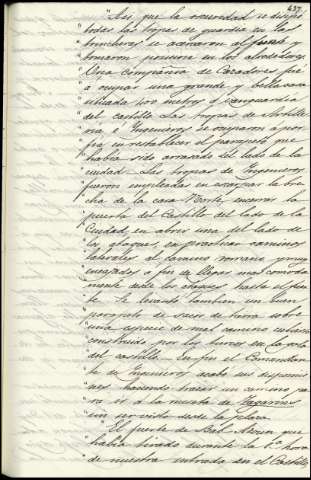 437
"Así que la oscuridad se disipó
"todas las tropas de guardia en las
"trincheras se acercaron al fuerte y
"tomaron posicion en los alrededores.
"Una compañia de Cazadores fué
"á ocupar una grande y bella casa
"situada 400 metros á vanguardia
"del castillo. Las tropas de Artille-
"ria é Ingenieros se ocuparon á por-
"fia en restablecer el parapeto que
"habia sido arrasado del lado de la
"ciudad. Las tropas de Ingenieros
"fueron empleadas en escarpar la bre-
"cha de la cara Norte, cerrar la
"puerta del Castillo del lado de la
"Ciudad, en abrir una del lado de
"los ataques, en practicar caminos
"laterales al camino romano muy
"encajados á fin de llegar mas comoda-
"mente desde los ataques hasta el fuer-
"te. Se levantó tambien un buen
"parapeto de sacos de tierra sobre
"una especie de mal camino cubierto
"construido por los turcos en la gola
"del castillo. En fin el Comandan-
"te de Ingenieros acabó sus disposicio-
"nes haciendo trazar un camino pa-
"ra ir á la meseta de Tagarins
"sin ser visto desde la plaza.
"El fuerte de Bab-Azoun que
"habia tirado durante la 1.ª hora
"de nuestra entrada en el Castillo